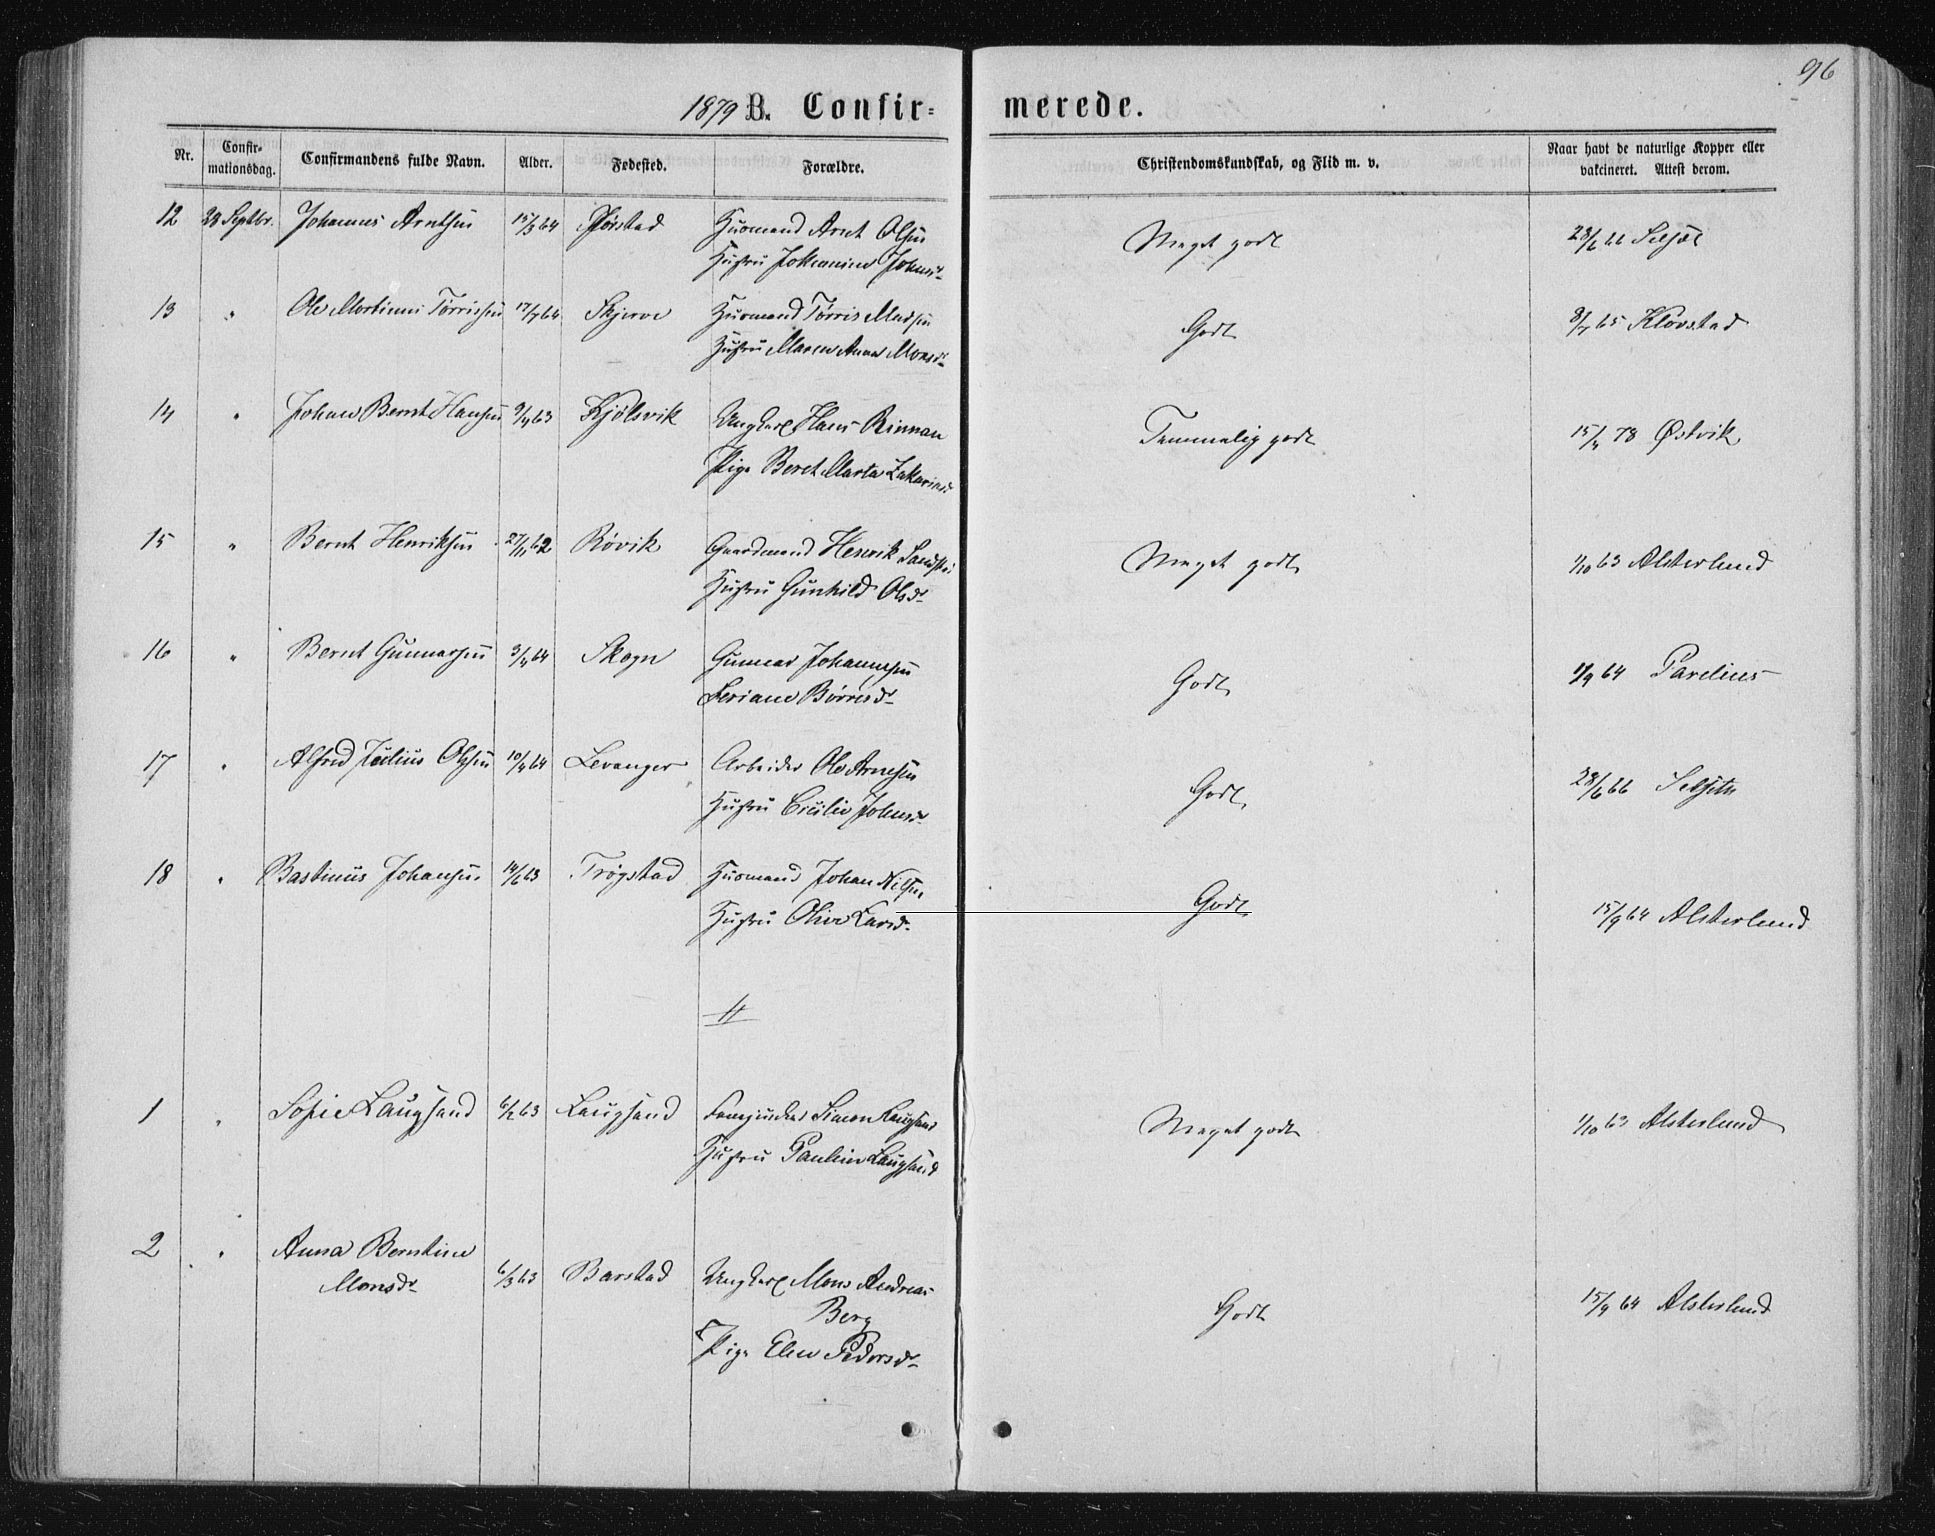 96
1879 B. Confir-
merede.
Nr. Confir-mationsdag. Confirmandens fulde Navn. Alder. Fødested. Forældre. Christendomskundskab, og Flid m. v. Naar havt de naturlige Kopper eller vakcineret. Attest derom.
12 28 Septbr. Johannes Arntsen 15/3 64 Husmand Arnt Olsen Meget godt 28/6 66
Hustru
13 " Ole Martinus Tørrissen 17/7 64 Skjerve Husmand Tørris Madsen Godt 8/7 65 Klovstad
Hustru Maren Anna Monsdr
14 " Johan Bernt Hansen 9/4 63 Kjølsvik Ungkarl Hans Rinnan Temmelig godt 15/4 78 Østvik
Pige Beret Marta Zakariasdr
15 " Bernt Henriksen 27/11 62 Røvik Gaardmand Henrik Meget godt 1/10 63 Alsterlund
Hustru Gunhild Olsdr
16 " Bernt Gunnarsen 3/4 64 Skogn Gunnar Johannesen Godt 1/9 64 Parelius
Seriane Børresdr
17 " Alfred Julius Olssen 10/4 64 Levanger Arbeider Ole Arnesen Godt 28/6 66
Hustru Cicilie Johnsdr
18 " Bastinus Johansen 14/6 63 Trøgstad Husmand Johan Nilsen Godt 15/9 64 Alsterlund
Hustru Oline Larsdr
1 " Sofie Laugsand 6/2 63 Laugsand Simon Laugsand Meget godt 1/10 63 Alsterlund
Hustru Pauline Laugsand
2 " Anna Berntine
Monsdr 6/3 63 Barstad Ungkarl Mons Andreas Godt 15/9 64 Alsterlund
Berg
Pige Elen Pedersdr